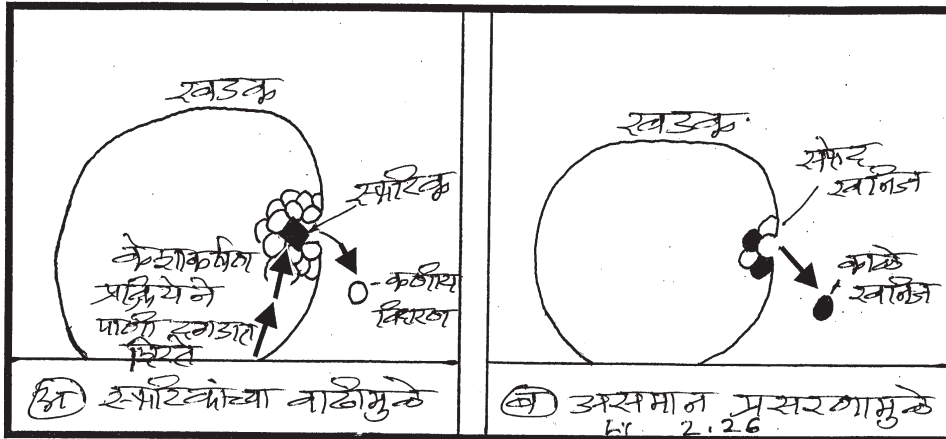 खडक
स्फटिक
केशाकर्षण
प्रक्रियेने
पाणी दगडात
शिरते
कणीय
विघटन
(अ) स्फटिकांच्या वाढीमुळे
खडक
सफेद
खनिज
काळे
खनिज
(ब) असमान प्रसरणामुळे
2.26